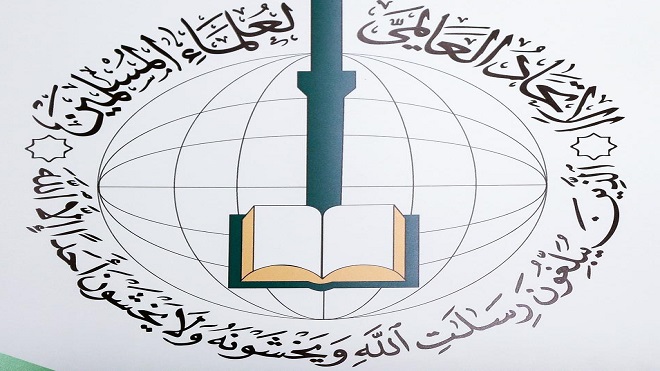 الاتحاد العالمي لعلماء المسلمين
الَّذِينَ يُبَلِّغُونَ رِسَالَاتِ اللَّهِ وَيَخْشَوْنَهُ وَلَا يَخْشَوْنَ أَحَدًا إِلَّا اللَّهَ